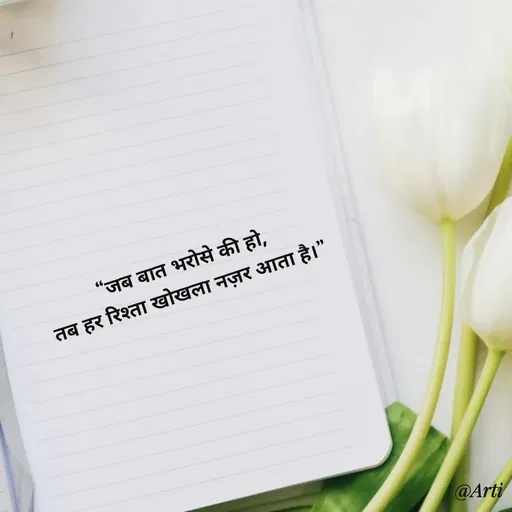 “जब बात भरोसे की हो,
तब हर रिश्ता खोखला नज़र आता है।”
@Arti